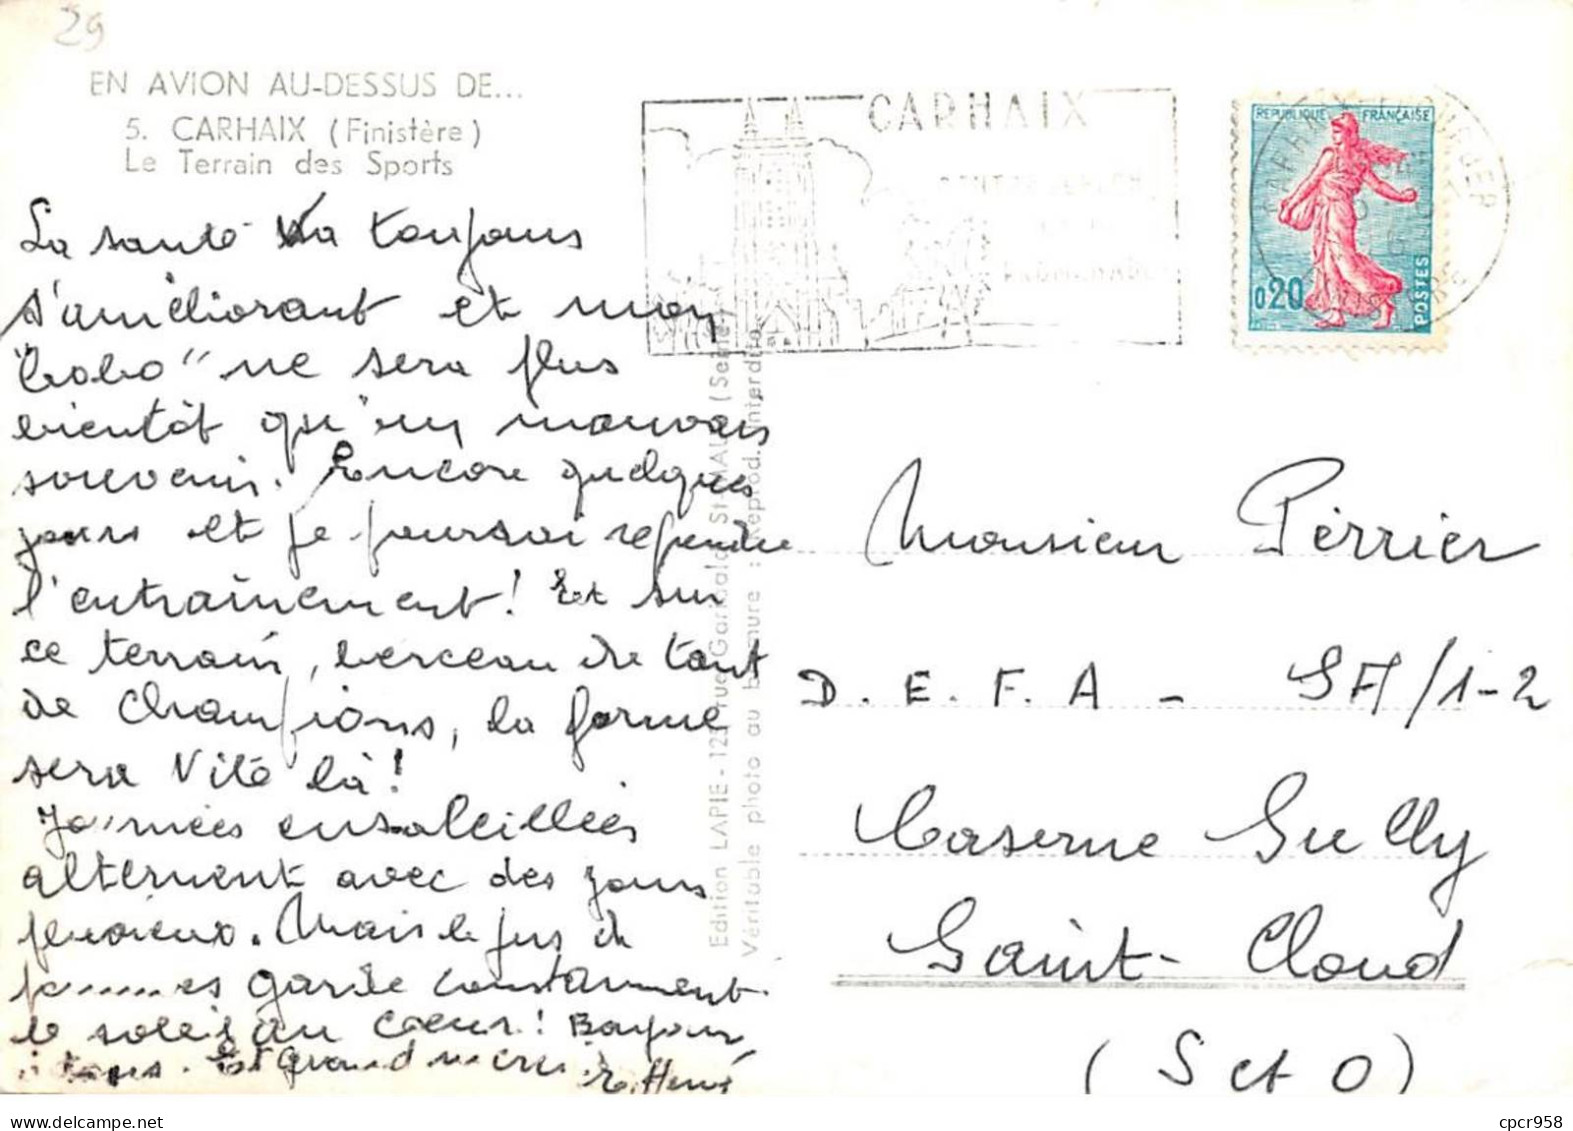 29
EN AVION AU-DESSUS DE...
5. CARHAIX (Finistère)
Le Terrain des Sports
La santé va toujours
s'améliorant et mon
"bobo" ne sera plus
bientôt qu'un mauvais
souvenir. Encore quelques
jours et je pourrai reprendre
l'entraînement! Et sur
ce terrain, berceau de tant
de Champions, la forme
sera vite là!
Journées ensoleillées
alternent avec des jours
pluvieux. Mais le jus de
pommes garde constamment
le soleil au coeur! Bonjour
à tous. Et grand merci
Hervé
Edition LAPIE - 12 rue Garibaldi St-MAUR (Seine)
Véritable photo au bromure : Reprod. interdite
CARHAIX
REPUBLIQUE FRANÇAISE
0,20
POSTES
Monsieur Périer
D.E.F.A - SA/1-2
Caserne Sully
Saint-Cloud
(S et O)
cpcr958